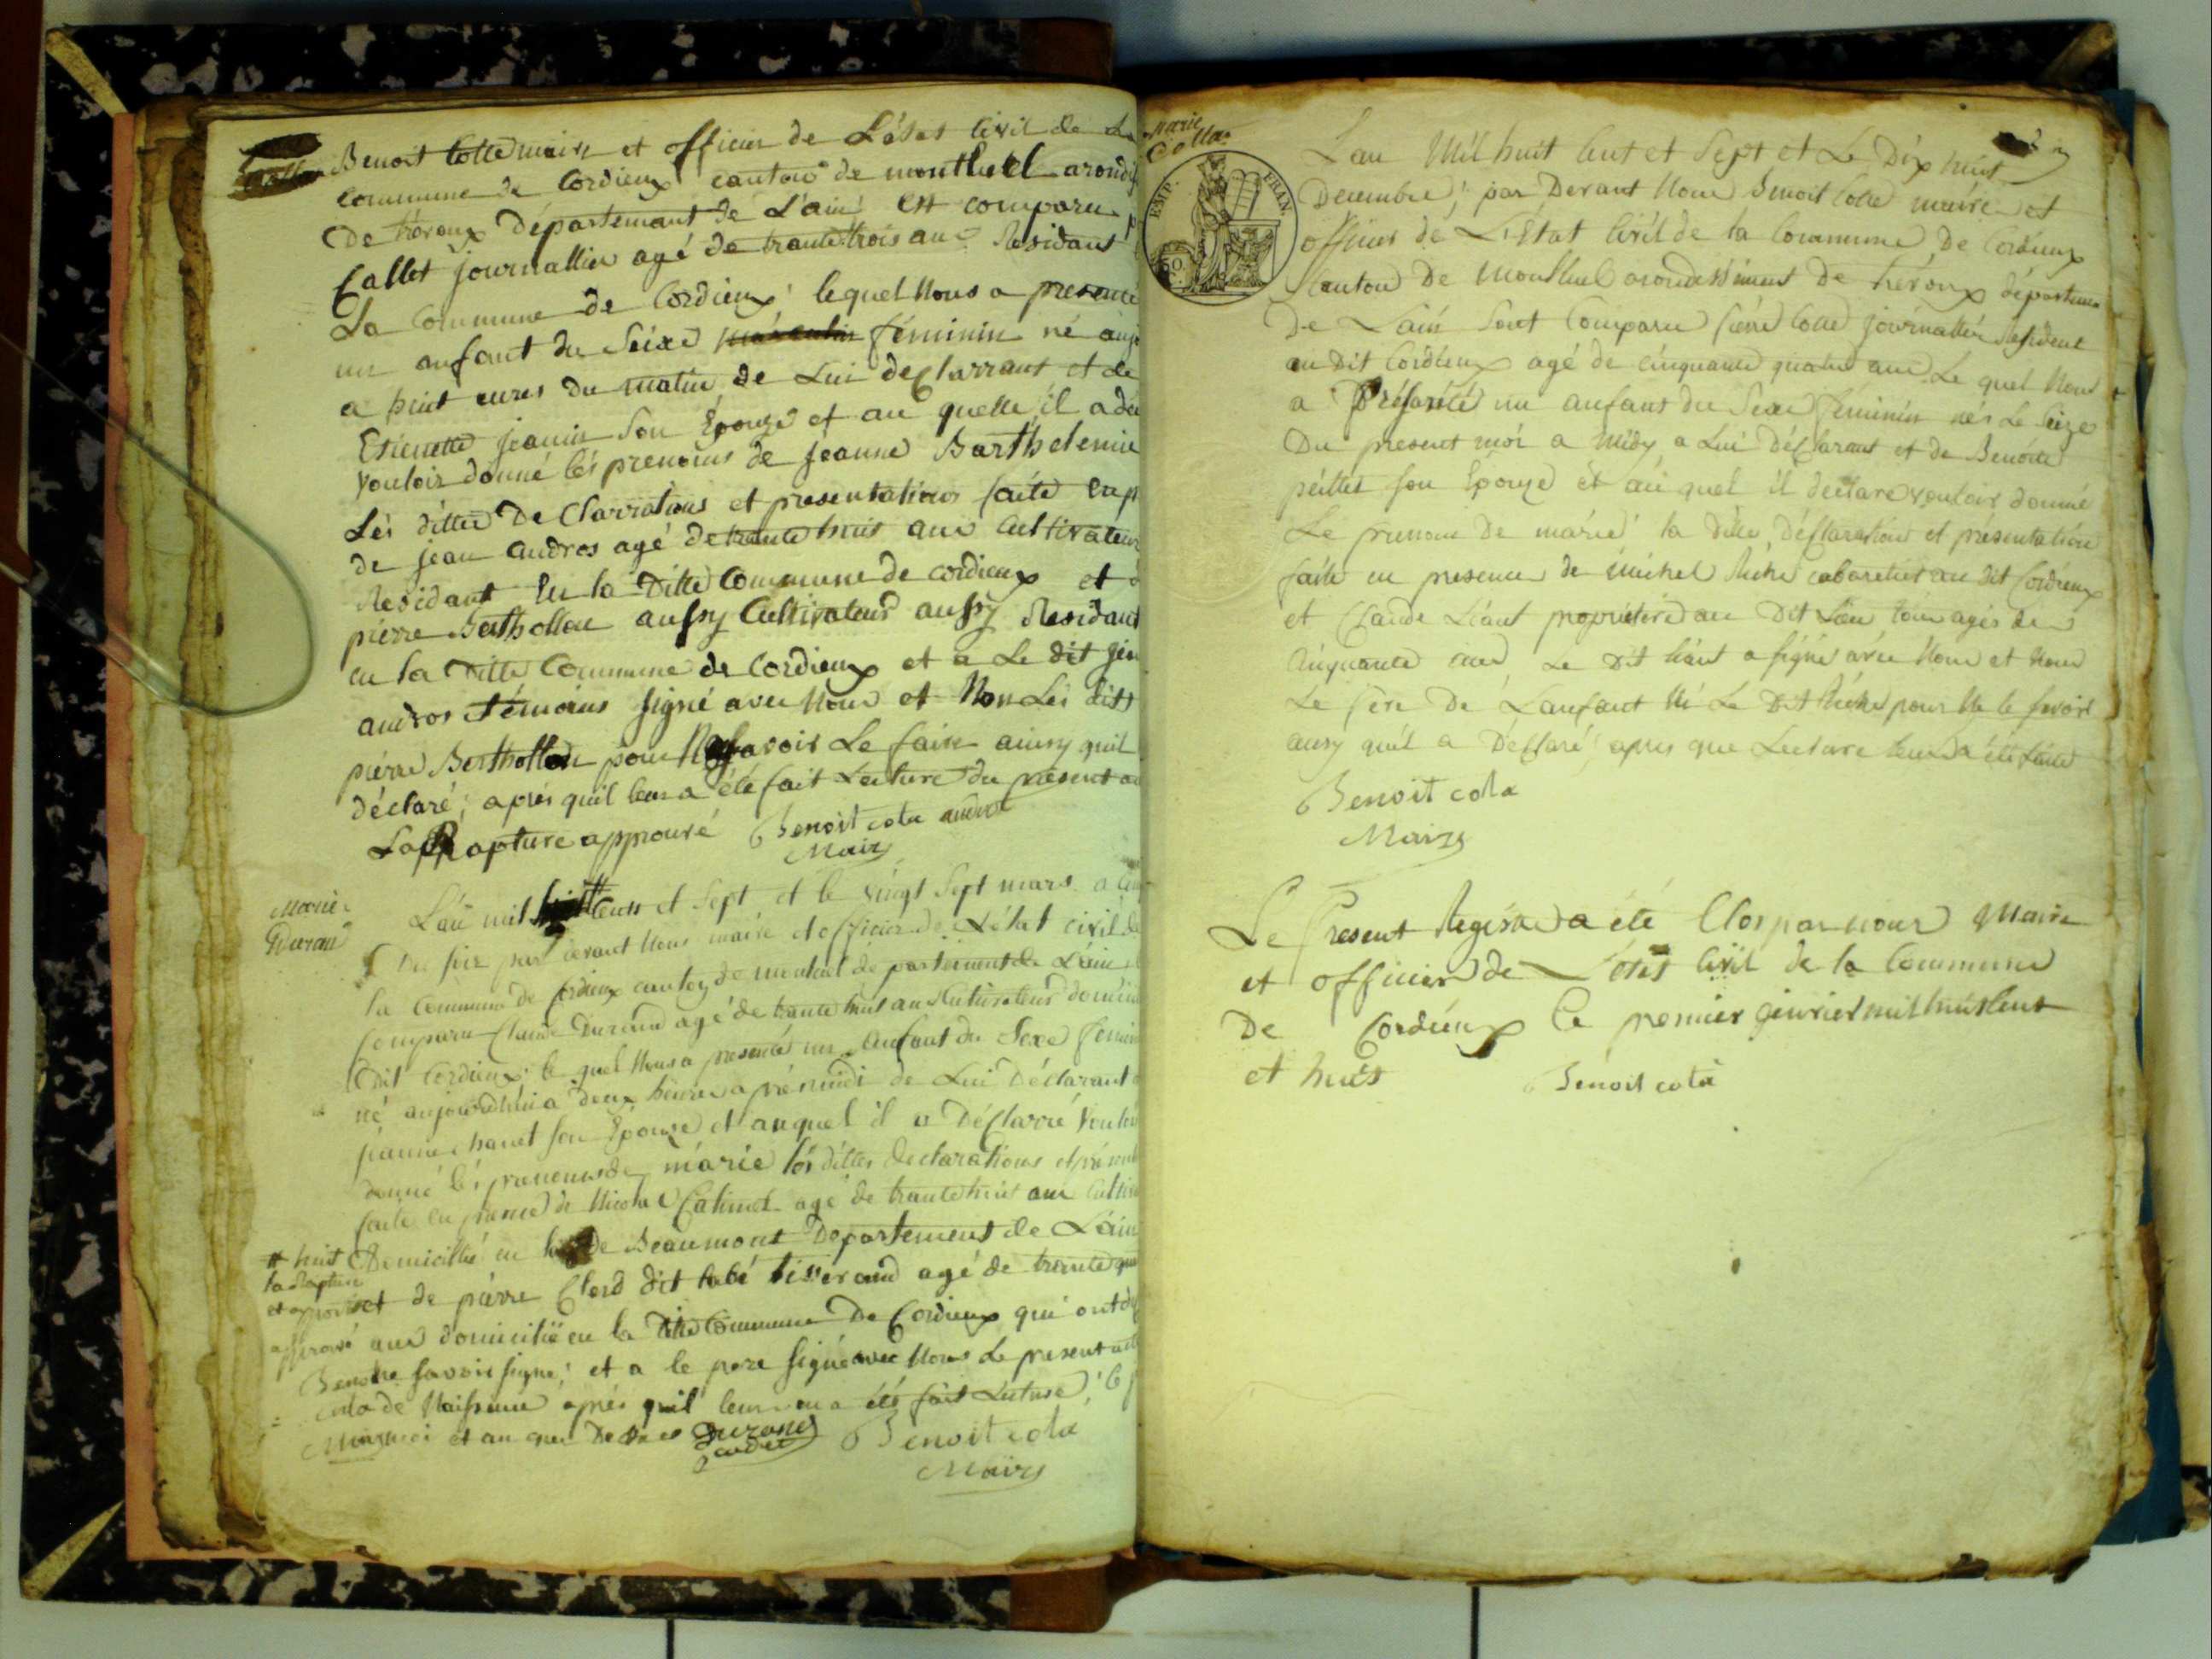 Benoit Cotte maire et officier de L'états Civil de La
Commune de Cordieux canton de montluel arondis
De trévoux Département de L'ain Est comparu
Callet journallier agé de trante trois ans Residant
La Commune de Cordieux lequel Nous a presenté
un anfant du Seixe masculin féminin né auj
a huit eures du matin de Lui declarrant et de
Etienette jeanin Son Epouze et au quelle il a dé
vouloir donné lés prenoms de jeanne Barthelemie
Lés dittes De Clarrations et presentations faite En p
de jean Andros agé de trante huis ans Cultivateur
Residant En la Ditte Commune de cordieux et d
pierre Berthollon aussy Cultivateur aussy Residant
en la Ditte Commune de Cordieux et a Le dit jea
andros témoins signé avec Nous et Non Lés dits
pierre Berthollon pour Ne savoir Le faire ainsy quil
déclaré, aprés quil leur a été fait Lecture du présent ac
La Rapture approuvé Benoit cota andros
Maire
Marie
Durand
L'an mil huit Cens et Sept et le vingt Sept mars a
Du soir par devant Nous maire et officier de L'état civil de
la Commune de Cordieux canton de montluel département de L'ain
Comparu Claude Durand agé de trante huit ans Cultivateur domicil
Dit Cordieux le quel Nous a presenté un Anfant du Sexe femin
né aujourdhui a deux heures aprémidi de Lui Déclarant
jeanne chanet son Epouze et auquel il a Déclarré vouloi
donné lés prenoms de marie lés dittes declarations et présent
faite en presence de Nicola Catimel agé de trante huit ans Cultiv
# huit Domicillié en de Beaumont Departement de L'ain
la Rapture
et de pierre Clerd dit labé tisserand agé de trante qua
approuvé ans domicilié en la Ditte Commune De Cordieux qui ont d
Benoit ne savoir signé, et a le pere signé avec Nous Le present act
cota de Naissance aprés quil leur en a été fait Lecture,
Maire Durand Benoit cota
Maire
Marie
Collta
EMP. FRAN.
L'an Mil huit Cent et Sept et Le Dix huit
Decembre, par Devant Nous Benoit Cotte maire et
officier dé L'Etat Civil de la Commune De Cordieux
Canton De Montluel arondissement De tréroux départeme
De L'ain Sont Comparu Pierre Cotte journallier Résident
au Dit Cordieux agé de cinquante quatre ans Le quel Nous
a Présanté un anfans du Sexe féminin nés Le Seize
Du present moi a Midy a Lui Déclarant et de Benoite
peilles son Epouze et au quel il declare vouloir donné
Le prenom De marie la ditte Déclaration et présentation
faite en presence de Michel Riche cabaretier au dit Cordieux
et Claude Liant propriétére au Dit Lieu tous agés de
Cinquante ans Le Dit liant a signé avec Nous et Non
Le Pere De L'anfant Ni Le Dit Riche pour Ne le savoir
ainsy quil a Déclaré, apres que Lecture leur a été faite
Benoit cota
Maire
Le Present Registre a été Clos par nous Maire
et officier de L'étas Civil de la Commune
De Cordieux Ce premier jeinvier mil huis Cent
et huis Benoit cota